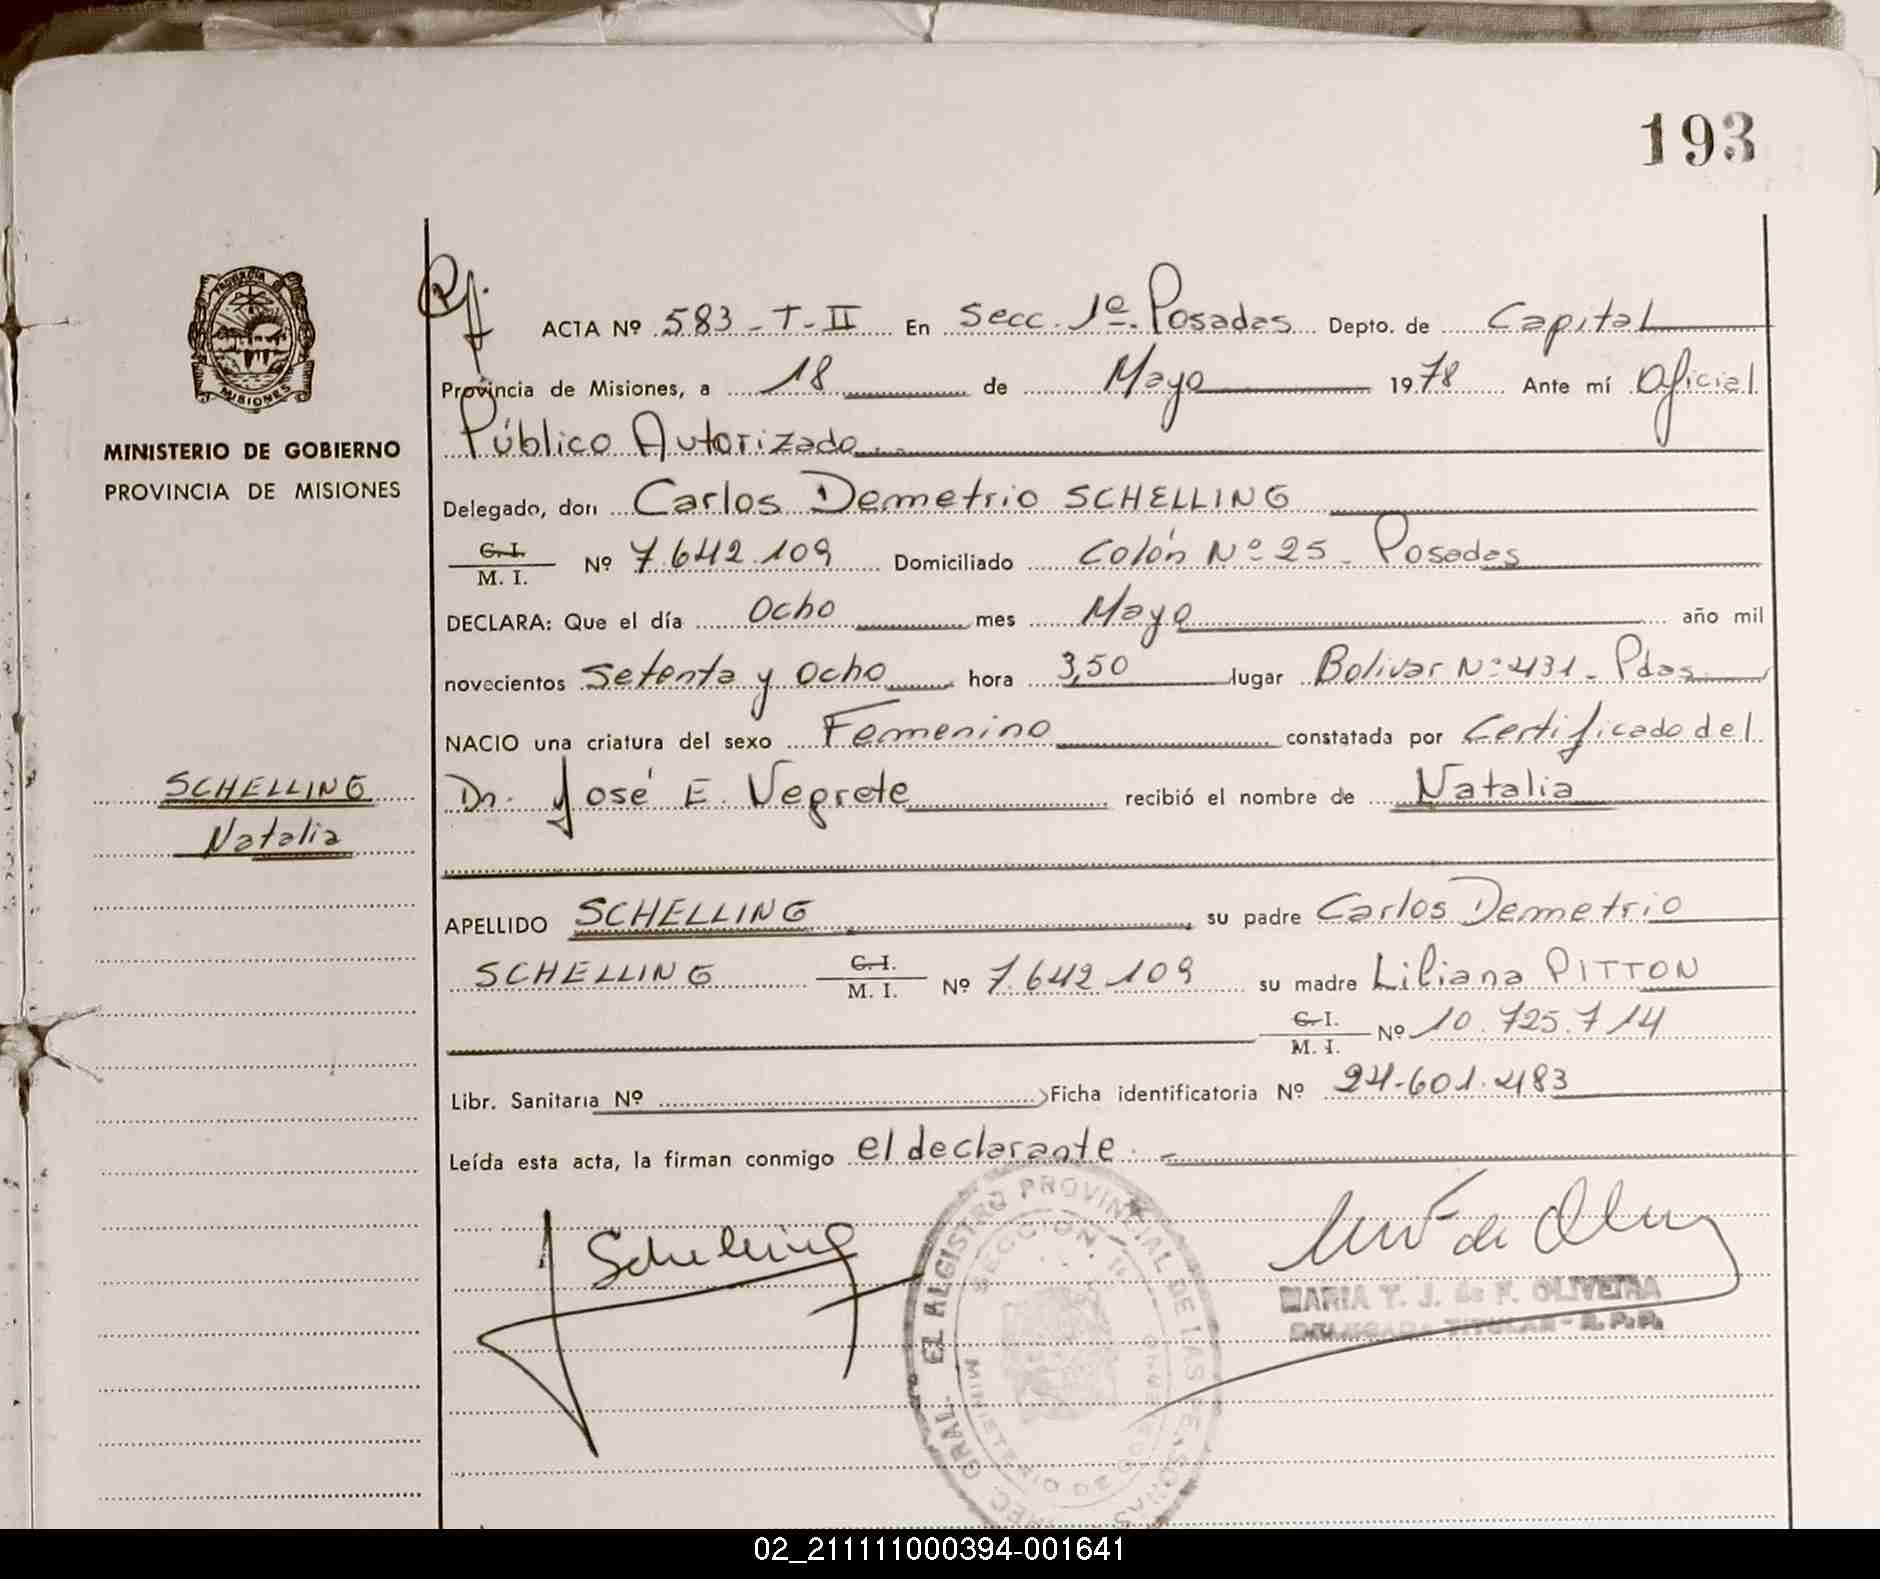 193
PROVINCIA DE
MISIONES
MINISTERIO DE GOBIERNO
PROVINCIA DE MISIONES
SCHELLING
Natalia
ACTA Nº 583 - T - II En Secc. 1ª Posadas Depto. de Capital
Provincia de Misiones, a 18 de Mayo 1978 Ante mí Oficial
Público Autorizado
Delegado, don Carlos Demetrio SCHELLING
C. I.
M. I. Nº 7.642.109 Domiciliado Colón Nº 25 - Posadas
DECLARA: Que el día Ocho mes Mayo año mil
novecientos Setenta y Ocho hora 3,50 lugar Bolivar Nº 431 - Pdas
NACIO una criatura del sexo Femenino constatada por Certificado del
Dr. José E. Negrete recibió el nombre de Natalia
APELLIDO SCHELLING su padre Carlos Demetrio
SCHELLING C. I. M. I. Nº 7.642.109 su madre Liliana PITTON
C. I. M. I. Nº 10.725.714
Libr. Sanitaria Nº Ficha identificatoria Nº 24.601.483
Leída esta acta, la firman conmigo el declarante. -
Schelling
MARIA T. J. de F. OLIVEIRA
DELEGADA TITULAR - R.P.P.
REGISTRO PROVINCIAL DE LAS PERSONAS
SECCION 1ª
MINISTERIO DE GOBIERNO
02_211111000394-001641